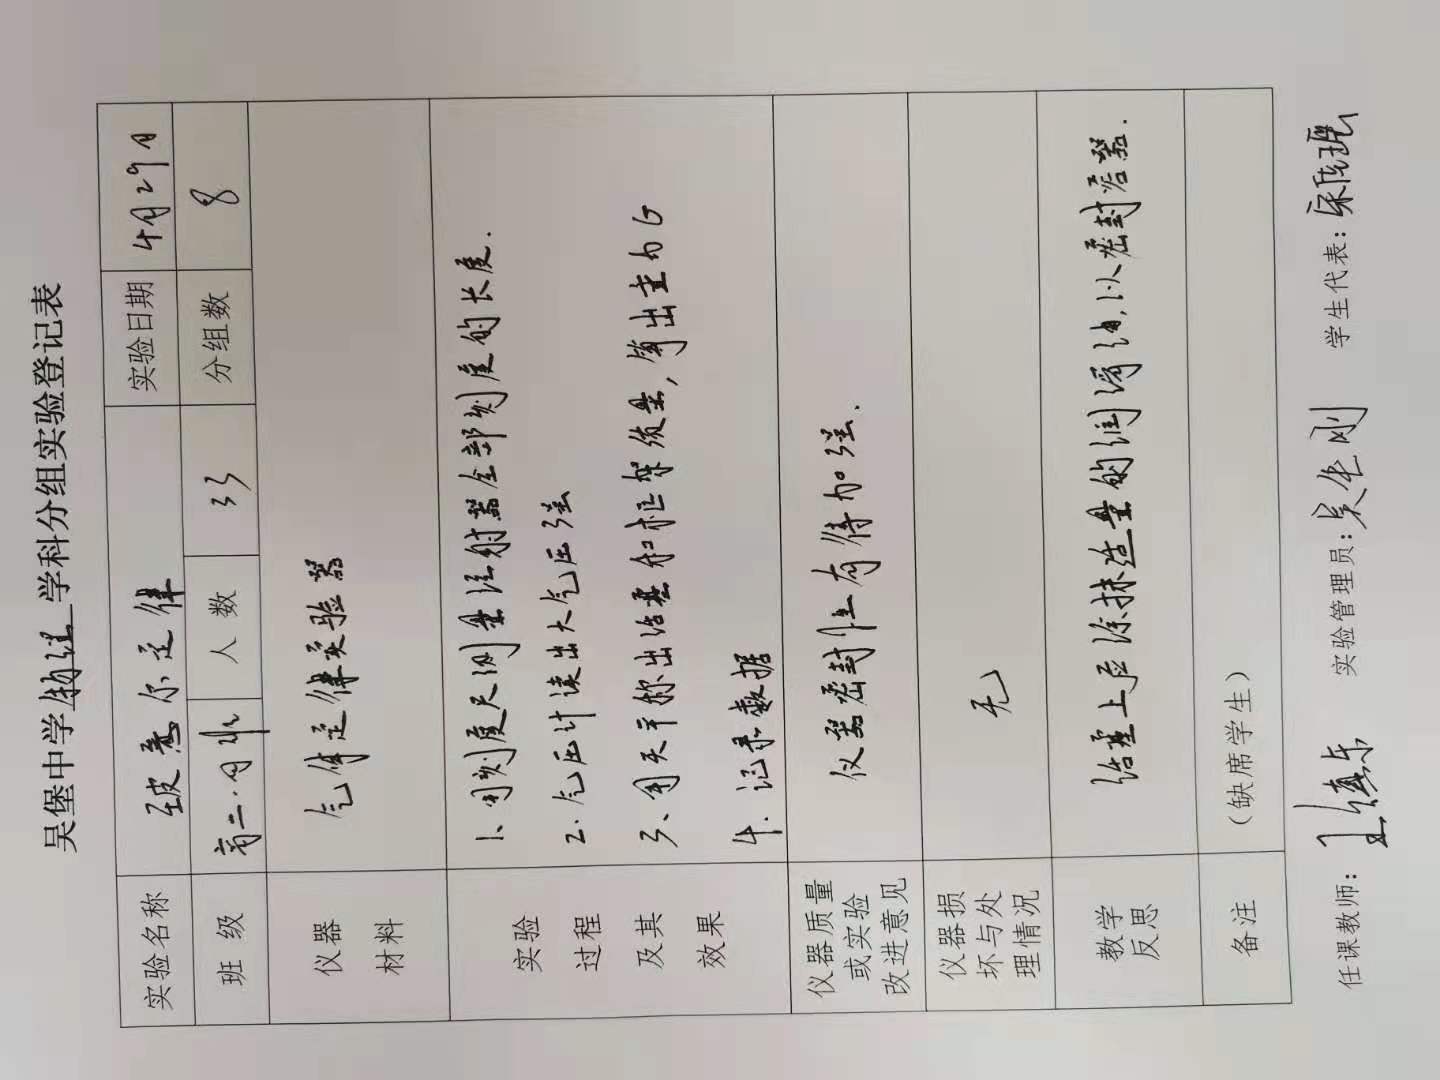 吴堡中学物理学科分组实验登记表
实验名称 玻意尔定律 实验日期 4月29日
班 级 高二· 人 数 33 分组数 8
仪器
材料
气体定律实验器
实验
过程
及其
效果
1、用刻度尺测量注射器全部刻度的长度.
2.气压计读出大气压强
3、用天平称出活塞和框架质量,算出重力G
4.记录数据
仪器质量
或实验
改进意见
仪器密封性有待加强.
仪器损
坏与处
理情况
无
教学
反思
活塞上应涂抹适量的润滑油,以密封容器.
备注
(缺席学生)
任课教师: 实验管理员: 学生代表: